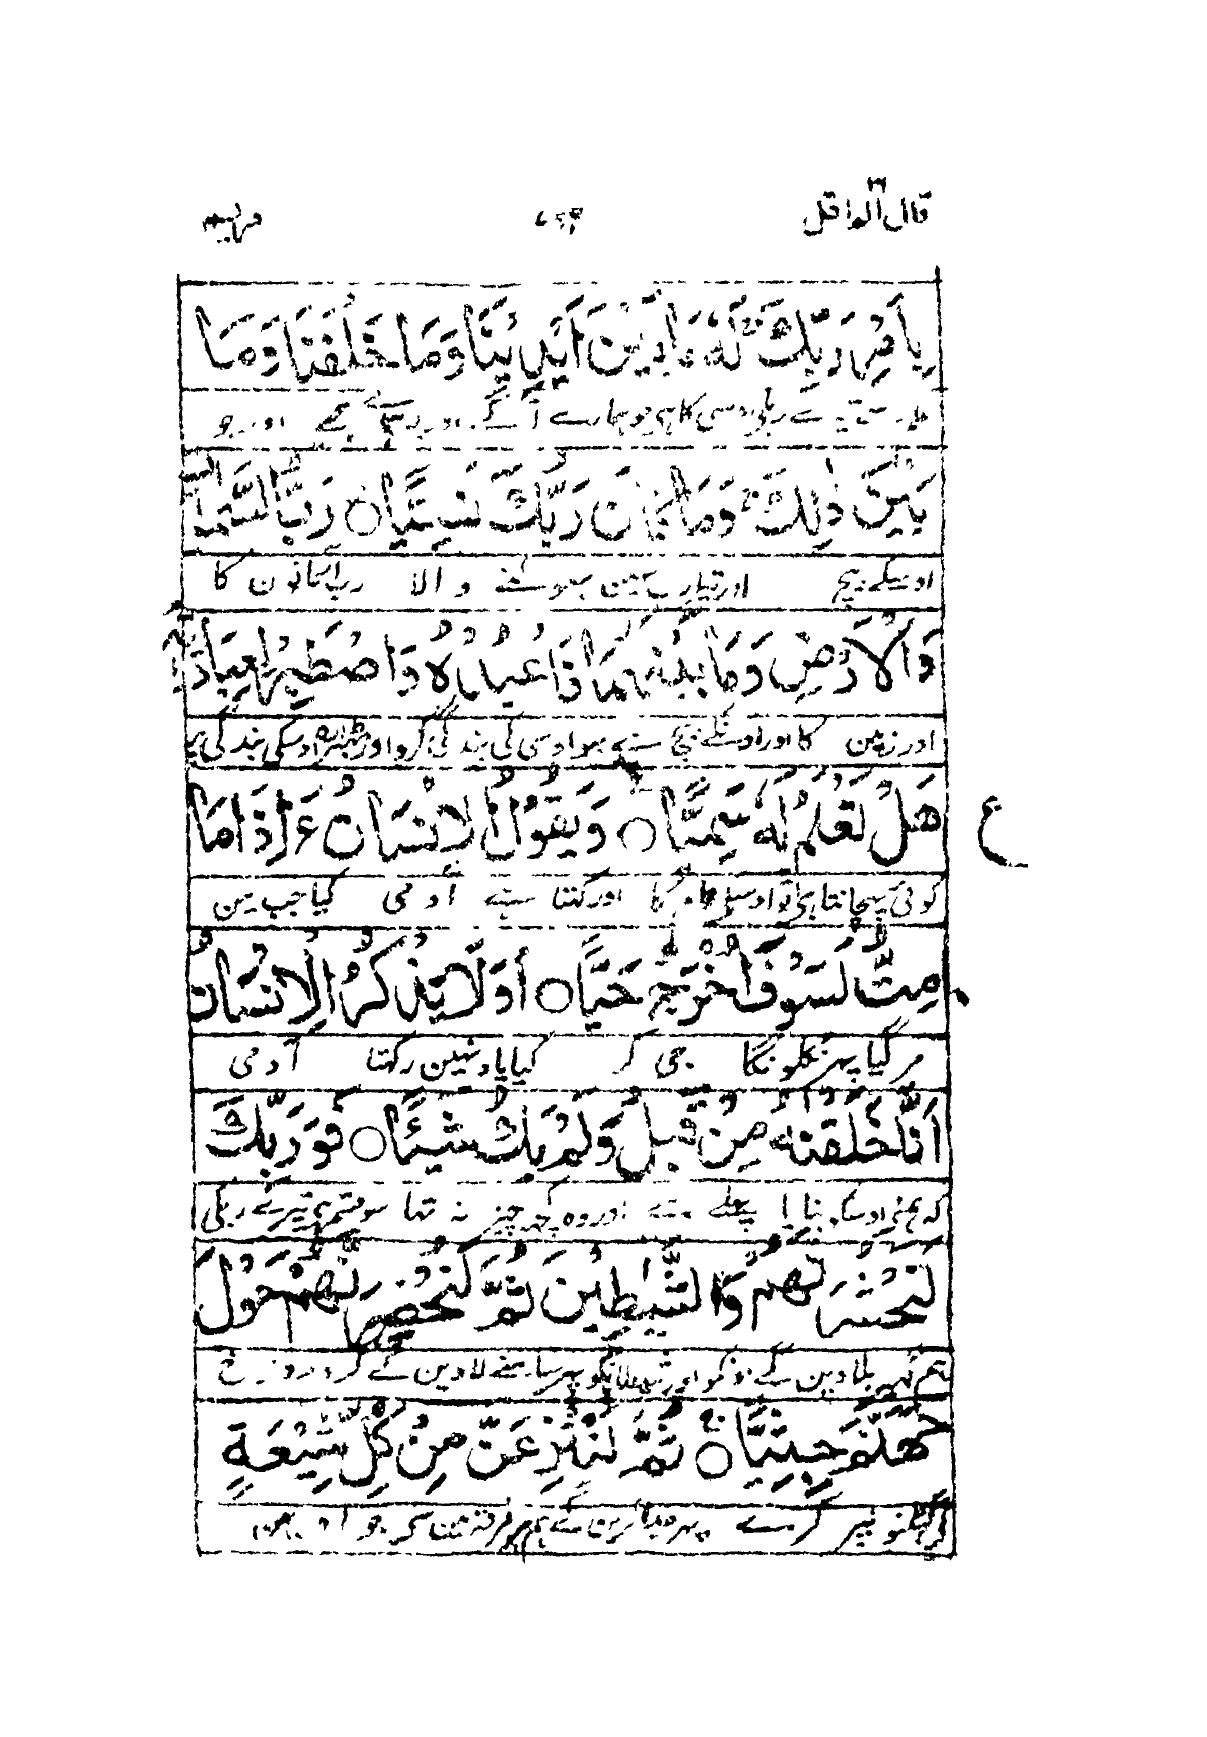 قال الواقل ٣ مريم
بِأَمْرِ رَبِّكَ لَهُ مَا بَيْنَ أَيْدِينَا وَمَا خَلْفَنَا وَمَا
سے کا ہی جو ہمارے آگے اور پیچھے اور جو
بَيْنَ ذٰلِكَ وَمَا كَانَ رَبُّكَ نَسِيًّا ○ رَبُّ السَّمٰوٰتِ
اوسکے بیچ اور تیرا رب نہین بھولنے والا رب آسمانون کا
وَالْاَرْضِ وَمَا بَيْنَهُمَا فَاعْبُدْهُ وَاصْطَبِرْ لِعِبَادَتِهٖ
اور زمین کا اور اونکے بیچ ہے سو اوسی کی بندگی کرو اور ٹھہرارہ اوسکی بندگی پر
هَلْ تَعْلَمُ لَهُ سَمِيًّا ○ وَيَقُوْلُ الْاِنْسَانُ ءَاِذَا مَا
ع
کوئی پہچانتا ہی تو اوسکے نام کا اور کہتا ہے آدمی کیا جب مین
مِتُّ لَسَوْفَ اُخْرَجُ حَيًّا ○ اَوَلَا يَذْكُرُ الْاِنْسَانُ
مر گیا پھر نکلونگا جی کر کیا یاد نہین رکھتا آدمی
اَنَّا خَلَقْنٰهُ مِنْ قَبْلُ وَلَمْ يَكُ شَيْئًا ○ فَوَرَبِّكَ
کہ ہمنے اوسکو بنایا پہلے سے اور وہ کچھ چیز نہ تھا سو قسم ہی تیرے رب کی
لَنَحْشُرَنَّهُمْ وَالشَّيٰطِيْنَ ثُمَّ لَنُحْضِرَنَّهُمْ حَوْلَ
ہم گھیر بلاوین گے اونکو اور شیطانونکو پھر سامنے لاوین گے گرد دوزخ
جَهَنَّمَ جِثِيًّا ○ ثُمَّ لَنَنْزِعَنَّ مِنْ كُلِّ شِيْعَةٍ
گھٹنو نپر گرے پھر جدا کرین گے ہم ہر فرقہ مین سے جو